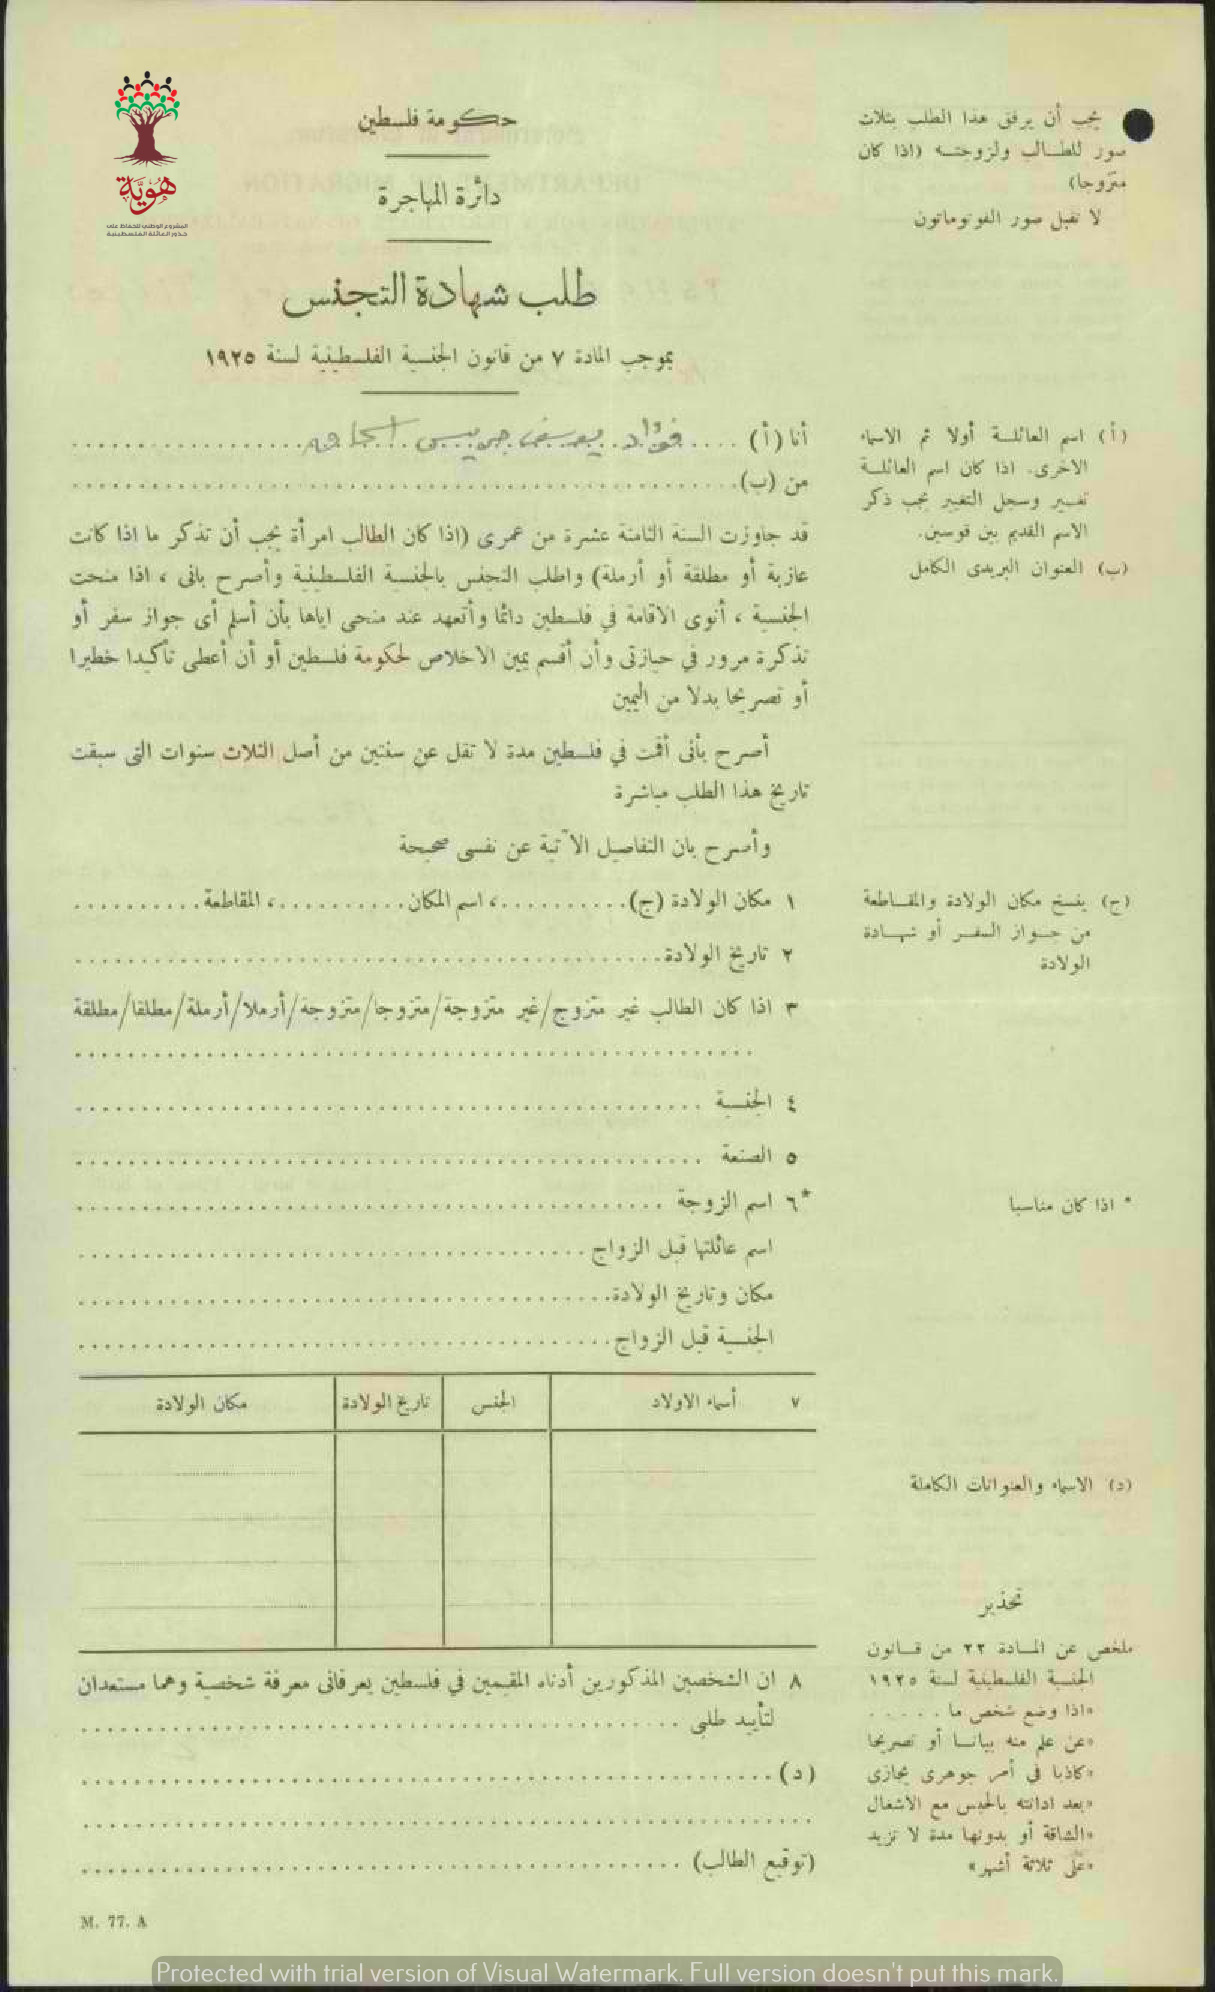 هوية
المشروع الوطني للحفاظ على
جذور العائلة الفلسطينية
حكومة فلسطين
دائرة المهاجرة
طلب شهادة التجنس
بموجب المادة ٧ من قانون الجنسية الفلسطينية لسنة ١٩٢٥
يجب أن يرفق هذا الطلب بثلاث
صور للطالب ولزوجته (اذا كان
متزوجا)
لا تقبل صور الفوتوماتون
أنا (أ) .... فؤاد يوسف جريس ..................
من (ب)..................................................
قد جاوزت السنة الثامنة عشرة من عمرى (اذا كان الطالب امرأة يجب أن تذكر ما اذا كانت
عازبة أو مطلقة أو أرملة) واطلب التجنس بالجنسية الفلسطينية وأصرح بانى ، اذا منحت
الجنسية ، أنوى الاقامة في فلسطين دائما وأتعهد عند منحى اياها بأن أسلم أى جواز سفر أو
تذكرة مرور في حيازتى وأن أقسم يمين الاخلاص لحكومة فلسطين أو أن أعطى تأكيدا خطيرا
أو تصريحا بدلا من اليمين
أصرح بأنى أقمت في فلسطين مدة لا تقل عن سنتين من أصل الثلاث سنوات التى سبقت
تاريخ هذا الطلب مباشرة
وأصرح بان التفاصيل الآتية عن نفسى صحيحة
١ مكان الولادة (ج)..........، اسم المكان..........، المقاطعة..........
٢ تاريخ الولادة.............................................
٣ اذا كان الطالب غير متزوج/غير متزوجة/متزوجا/متزوجة/أرملا/أرملة/مطلقا/مطلقة
....................................................
٤ الجنسية ................................................
٥ الصنعة ................................................
*٦ اسم الزوجة .............................................
اسم عائلتها قبل الزواج .......................................
مكان وتاريخ الولادة.........................................
الجنسية قبل الزواج.........................................
٧ أسماء الاولاد الجنس تاريخ الولادة مكان الولادة
٨ ان الشخصين المذكورين أدناه المقيمين في فلسطين يعرفانى معرفة شخصية وهما مستعدان
لتأييد طلبى ..............................................
(د) .....................................................
........................................................
(توقيع الطالب) ..............................................
M. 77. A
(أ) اسم العائلة أولا ثم الاسماء
الاخرى. اذا كان اسم العائلة
تغيير وسجل التغيير يجب ذكر
الاسم القديم بين قوسين.
(ب) العنوان البريدى الكامل
(ج) ينسخ مكان الولادة والمقاطعة
من جواز السفر أو شهادة
الولادة
* اذا كان مناسبا
(د) الاسماء والعنوانات الكاملة
تحذير
ملخص عن المادة ٢٢ من قانون
الجنسية الفلسطينية لسنة ١٩٢٥
«اذا وضع شخص ما .....
«عن علم منه بيانا أو تصريحا
«كاذبا فى أمر جوهرى يجازى
«بعد ادانته بالحبس مع الاشغال
«الشاقة أو بدونها مدة لا تزيد
«على ثلاثة أشهر»
Protected with trial version of Visual Watermark. Full version doesn't put this mark.